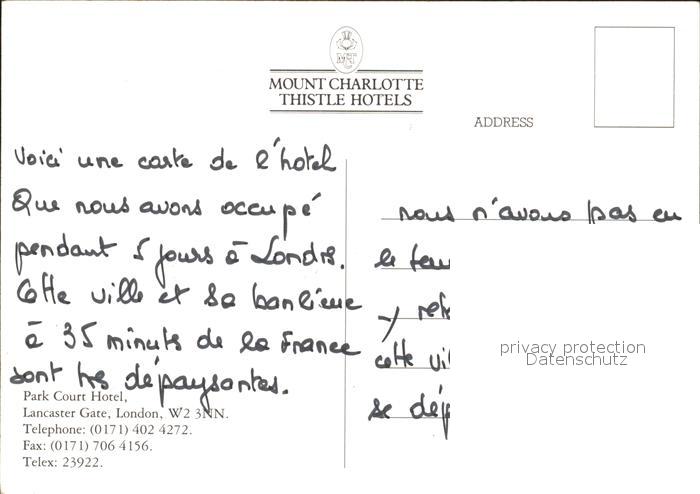 MOUNT CHARLOTTE
THISTLE HOTELS
ADDRESS
Voici une carte de l'hotel
Que nous avons occupé
pendant 5 jours à Londres.
Cette ville et sa banlieue
à 35 minuts de la France
sont très dépaysantes.
Park Court Hotel,
Lancaster Gate, London, W2 3NN.
Telephone: (0171) 402 4272.
Fax: (0171) 706 4156.
Telex: 23922.
nous n'avons pas eu
le
y
cette
se
privacy protection
Datenschutz